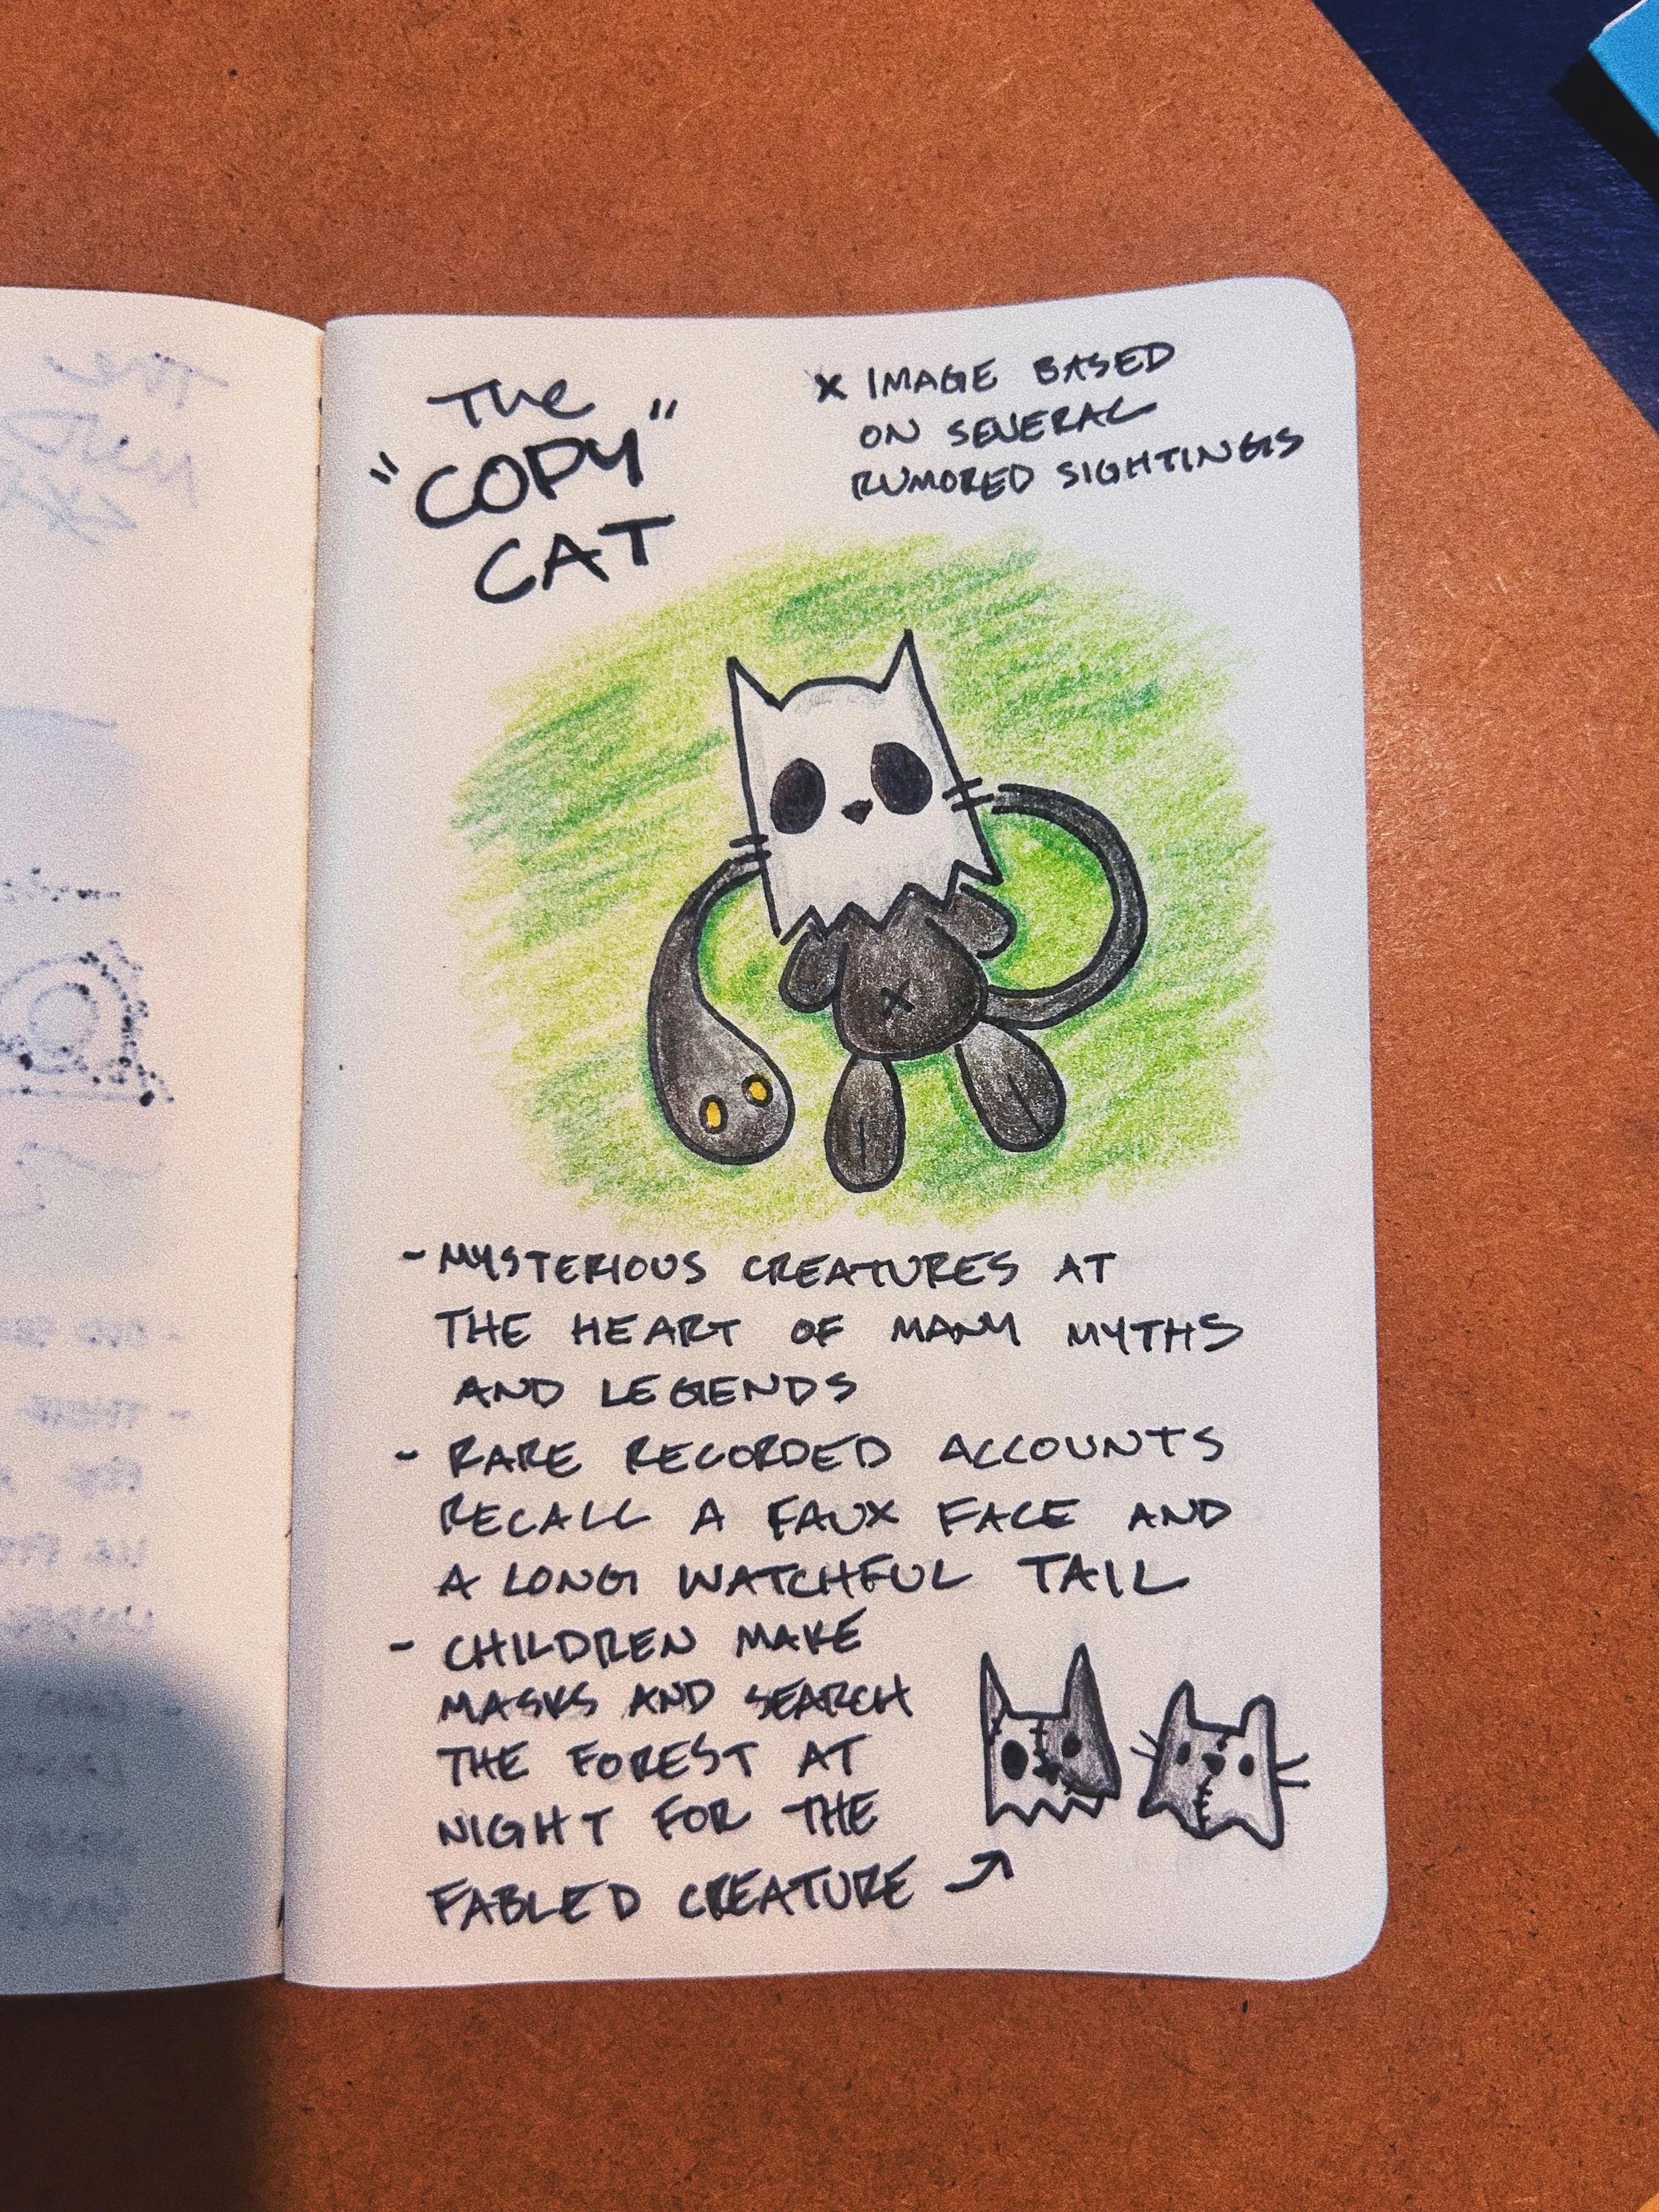 The
"COPY"
CAT
x IMAGE BASED
ON SEVERAL
RUMORED SIGHTINGS
- MYSTERIOUS CREATURES AT
THE HEART OF MANY MYTHS
AND LEGENDS
- RARE RECORDED ACCOUNTS
RECALL A FAUX FACE AND
A LONG WATCHFUL TAIL
- CHILDREN MAKE
MASKS AND SEARCH
THE FOREST AT
NIGHT FOR THE
FABLED CREATURE